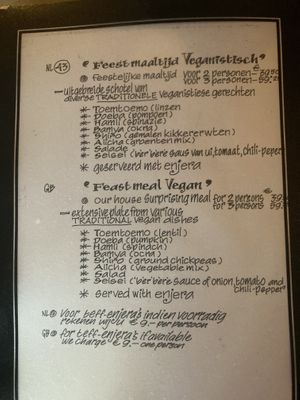 NL 43 " Feestmaaltijd Veganistisch "
@ feestelijke maaltijd voor 2 personen - €
voor 3 personen -
— uitgebreide schotel van
diverse TRADITIONELE veganistiese gerechten
* Toemtoemo (linzen
* Doeba (pompoen)
* Hamli (spinazie)
* Bamya (ocra)
* Shiro (gemalen kikkererwten)
* Alicha (groenten mix)
* Salade
* Seisei ('bèr'bère saus van ui, tomaat, chili-peper
* geserveerd met enjera
GB " Feastmeal Vegan "
@ our house surprising meal for 2 persons €
for 3 persons
— extensive plate from various
TRADITIONAL vegan dishes
* Toemtoemo (lentil)
* Doeba (pumpkin)
* Hamli (spinach)
* Bamya (ocra)
* Shiro (ground chickpeas)
* Alicha (vegetable mix)
* Salad
* Seisei ('bèr'bère sauce of onion, tomato and
chili-pepper
* served with enjera
NL @ Voor teff-enjera's indien voorradig
rekenen wij u € 9.- per persoon
GB @ for teff-enjera's if available
we charge € 9.- one person